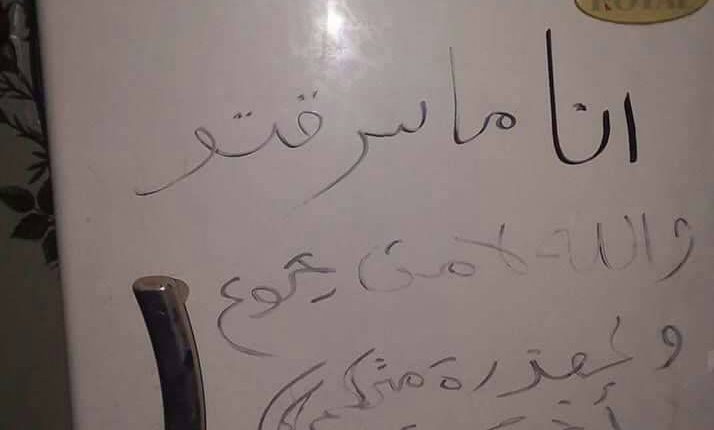 ROYAL
انا ما سرقتو
والله لامتت بجوع
والمعذرة منكم